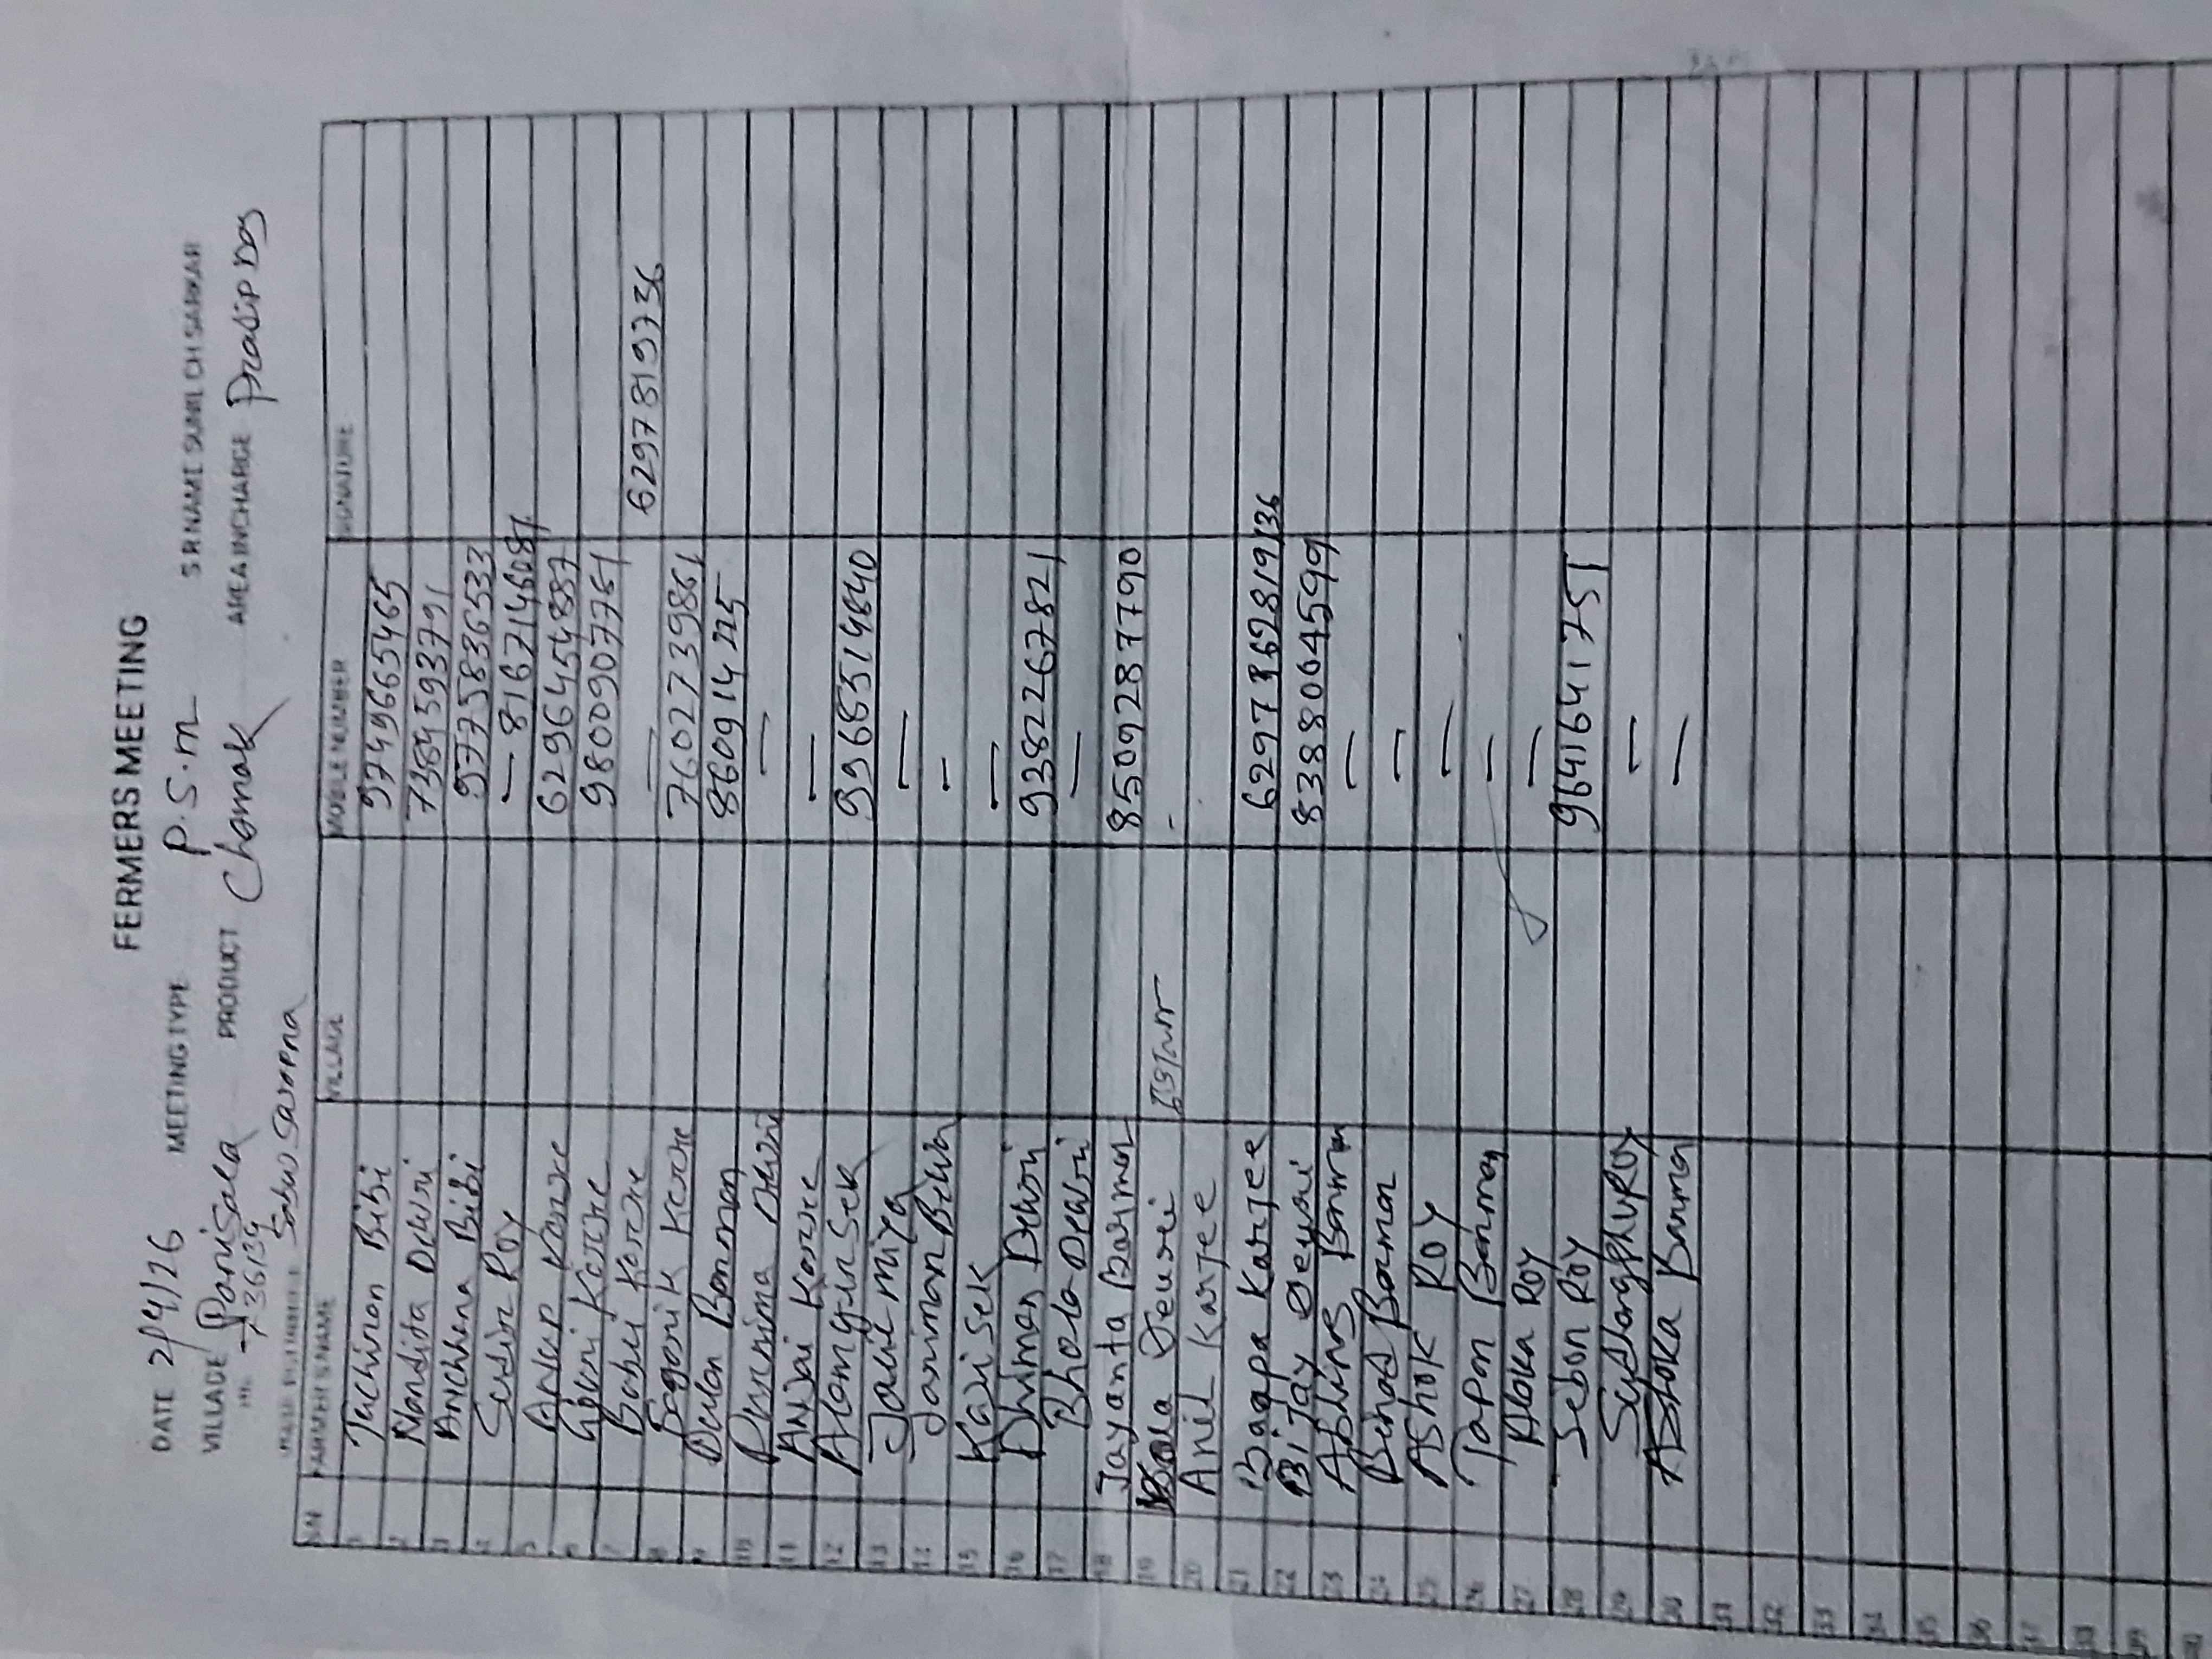 FERMERS MEETING
DATE 2/4/26 MEETING TYPE P.S.M S R NAME SUNIL CH SARKAR
VILLAGE Panisala PRODUCT Chamak AREA INCHARGE Pradip Das
736134
S.N FARMER'S NAME VILLAGE MOBILE NUMBER SIGNATURE
1 Jachiron Bibi 9749665465
2 Nandita Dewri 7384593791
3 Anchhena Bibi 9775836533
4 Sudir Roy — 8167146087
5 Anup Karjee 6296454887
6 Gouri Karjee 9800907761
7 Babu Karjee 6297819736
8 Karjee 7602739861
9 Dulon Barman 8609142225
10 Purnima Dewri —
11 Anjali Karjee —
12 Alomgir Sek 9968514840
13 Jalil miya —
14 Jariman Bewa —
15 Kazi Sek —
16 Dhiman Dewri 9382267821
17 Bhola Dewri —
18 Jayanta Barman 8509287790
19 Deusri -
20 Anil Karjee
21 Bapa Karjee
22 Bijay Deusri 8388004599
23 Barman —
24 Binod Barman —
25 Ashok Roy —
26 Tapon Barman —
27 Aloka Roy —
28 Sebon Roy 9641641751
29 Roy —
30 Ashoka Barman —
31
32
33
34
35
36
37
38
39
40